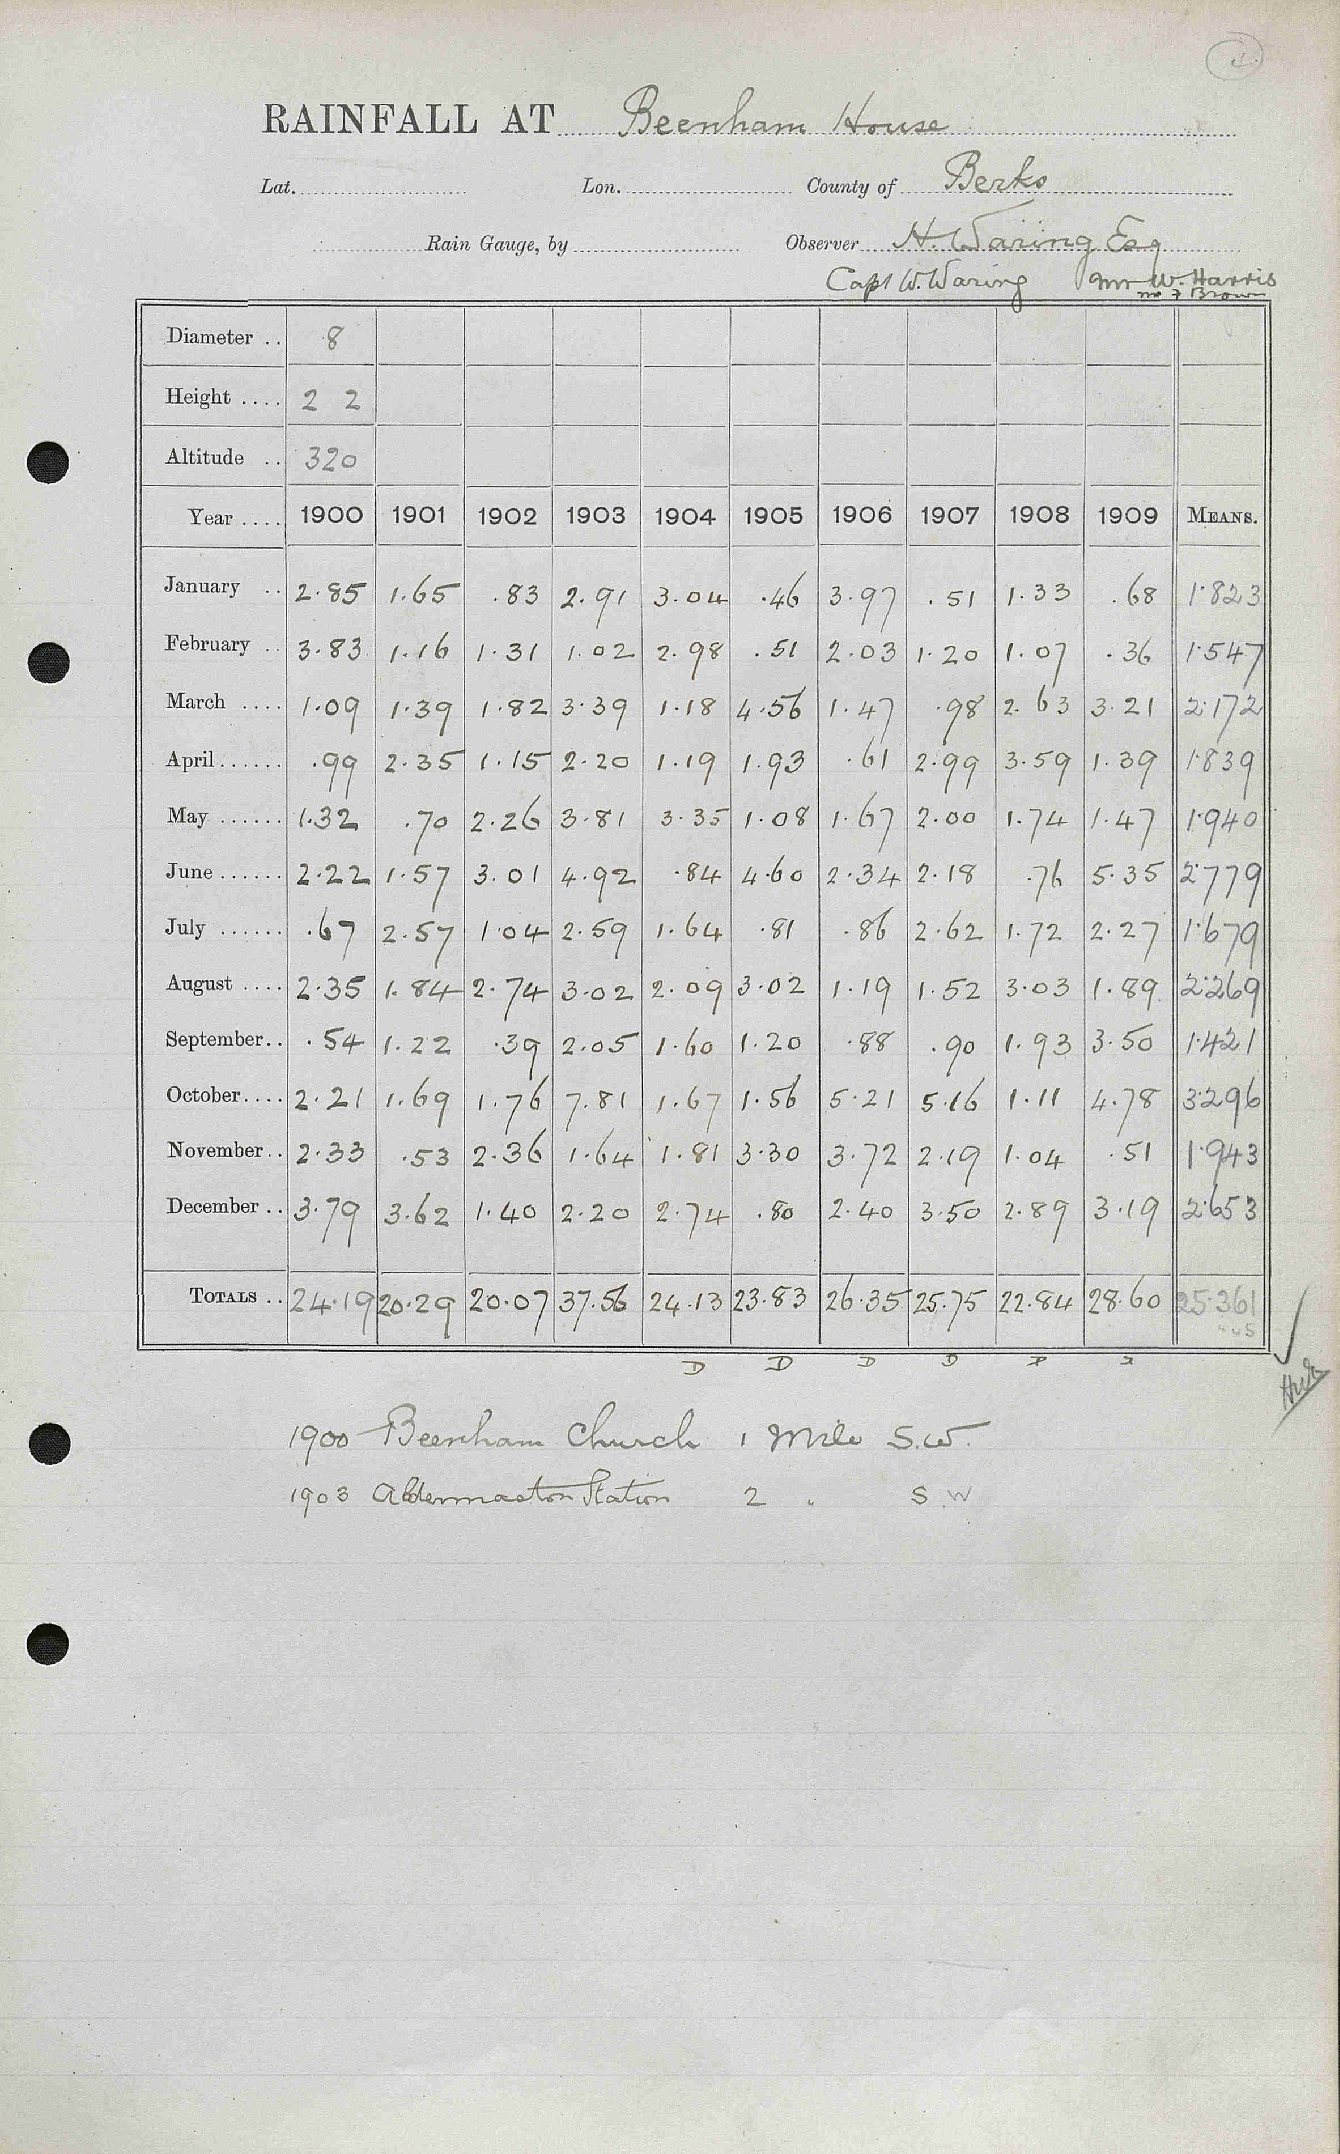 RAINFALL AT Beenham House
Lat. Lon. County of Berks
Rain Gauge, by Observer H. Waring Esq
Capt W. Waring Mr W. Harris
Mr F Brown
Diameter .. 8
Height .... 2 2
Altitude .. 320
Year .... 1900 1901 1902 1903 1904 1905 1906 1907 1908 1909 MEANS.
January .. 2.85 1.65 .83 2.91 3.04 .46 3.97 .51 1.33 .68 1.823
February .. 3.83 1.16 1.31 1.02 2.98 .51 2.03 1.20 1.07 .36 1.547
March .... 1.09 1.39 1.82 3.39 1.18 4.56 1.47 .98 2.63 3.21 2.172
April...... .99 2.35 1.15 2.20 1.19 1.93 .61 2.99 3.59 1.39 1.839
May ...... 1.32 .70 2.26 3.81 3.35 1.08 1.67 2.00 1.74 1.47 1.940
June...... 2.22 1.57 3.01 4.92 .84 4.60 2.34 2.18 .76 5.35 2.779
July ...... .67 2.57 1.04 2.59 1.64 .81 .86 2.62 1.72 2.27 1.679
August .... 2.35 1.84 2.74 3.02 2.09 3.02 1.19 1.52 3.03 1.89 2.269
September.. .54 1.22 .39 2.05 1.60 1.20 .88 .90 1.93 3.50 1.421
October.... 2.21 1.69 1.76 7.81 1.67 1.56 5.21 5.16 1.11 4.78 3.296
November.. 2.33 .53 2.36 1.64 1.81 3.30 3.72 2.19 1.04 .51 1.943
December .. 3.79 3.62 1.40 2.20 2.74 .80 2.40 3.50 2.89 3.19 2.653
TOTALS .. 24.19 20.29 20.07 37.56 24.13 23.83 26.35 25.75 22.84 28.60 25.361
D D D D D
1900 Beenham Church 1 Mile S.W.
1903 Aldermaston Station 2 " S.W